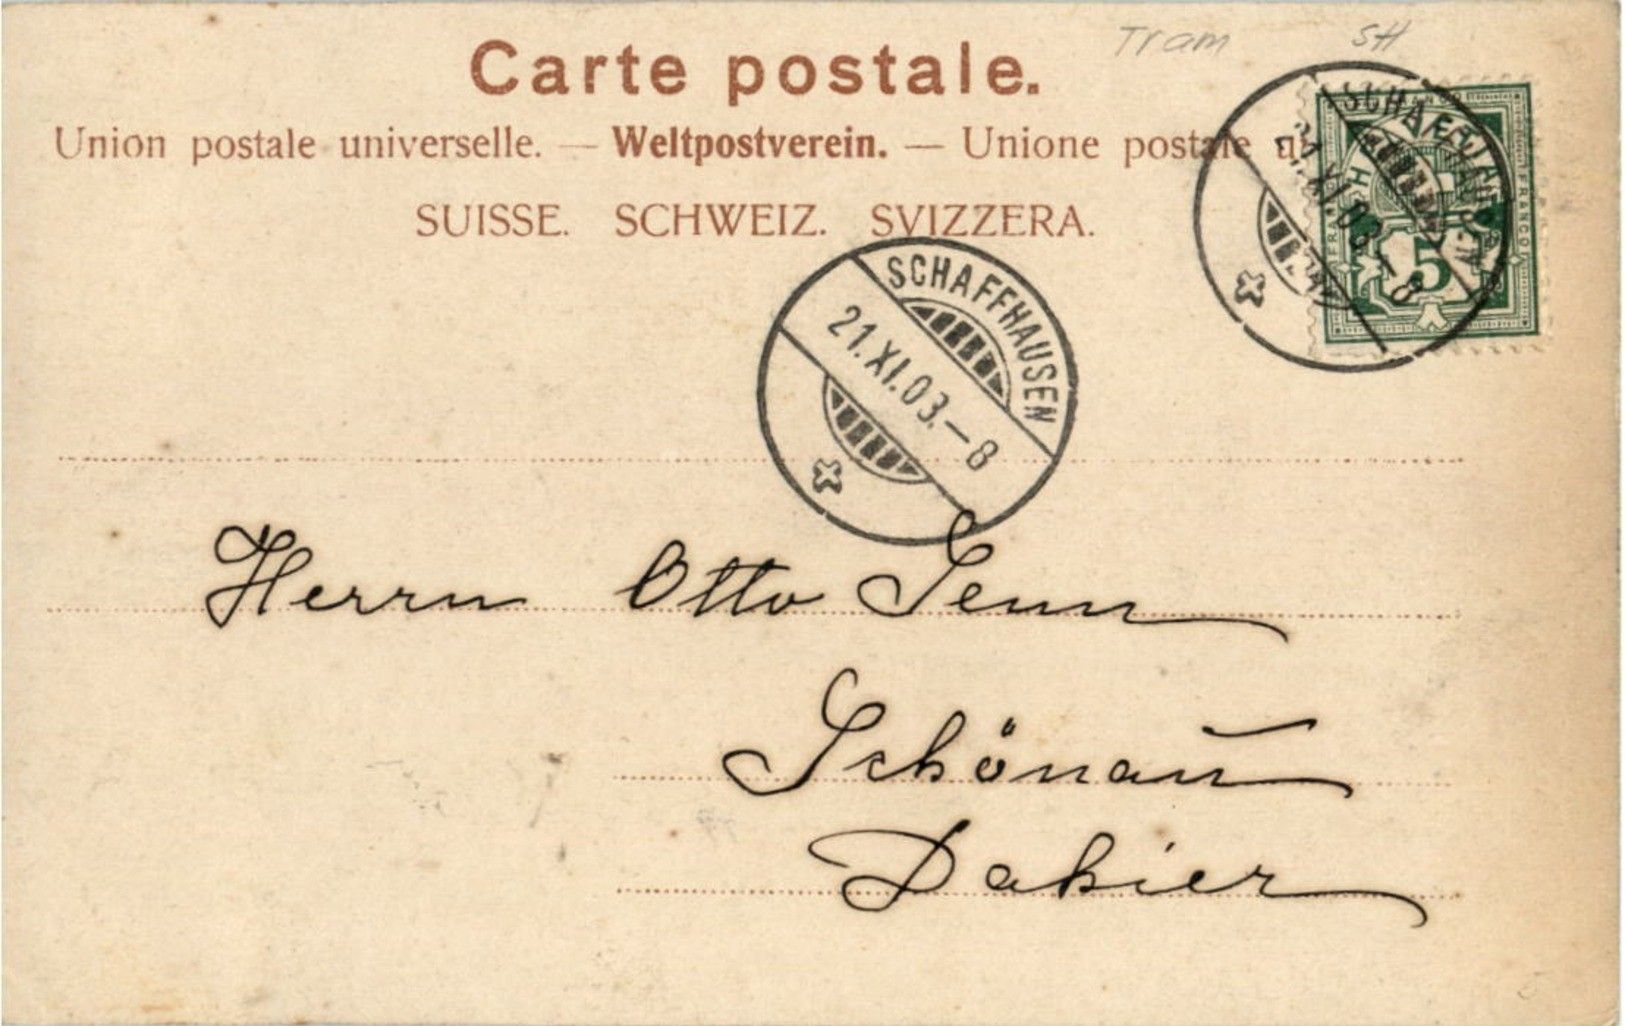 Tram SH
Carte postale.
Union postale universelle. — Weltpostverein. — Unione postale u
SUISSE. SCHWEIZ. SVIZZERA.
SCHAFFHAUSEN
21.XI.03.–8
FRANCO
5
SCHAFFHAUSEN
21.XI.03.–8
Herrn Otto Senn
Schönau
Dahier